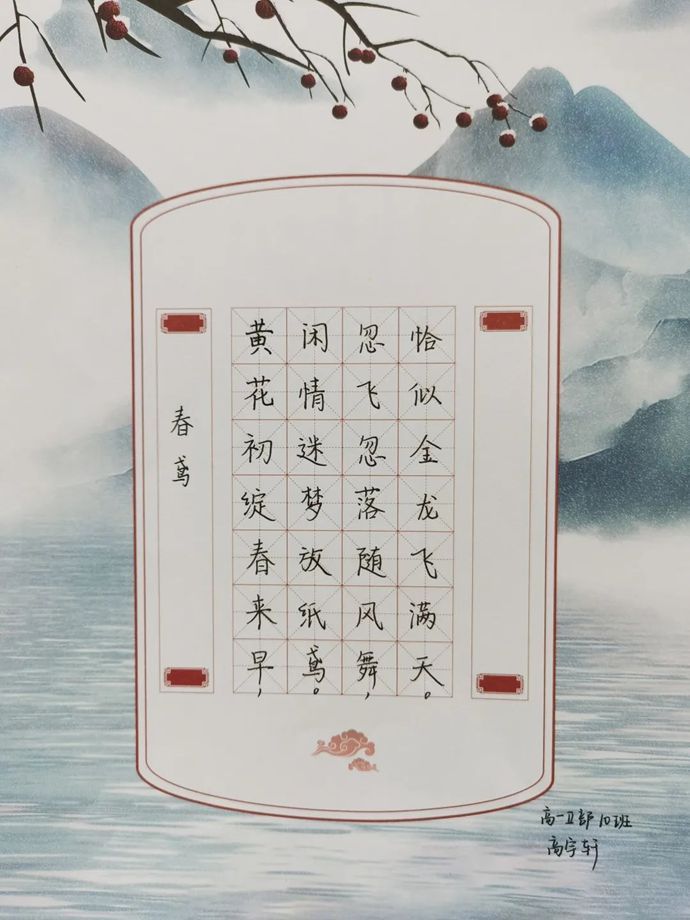 春鸢
黄花初绽春来早，
闲情迷梦放纸鸢。
忽飞忽落随风舞，
恰似金龙飞满天。
高一Ⅱ部10班
高宇轩